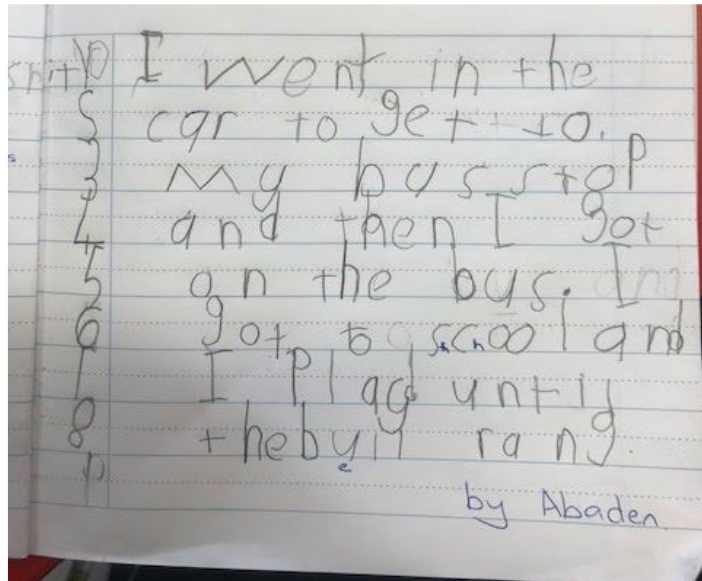 I went in the
car to get to.
my bus stop
and then I got
on the bus. I
got to scool and
I plad until
the byll rang.
by Abaden